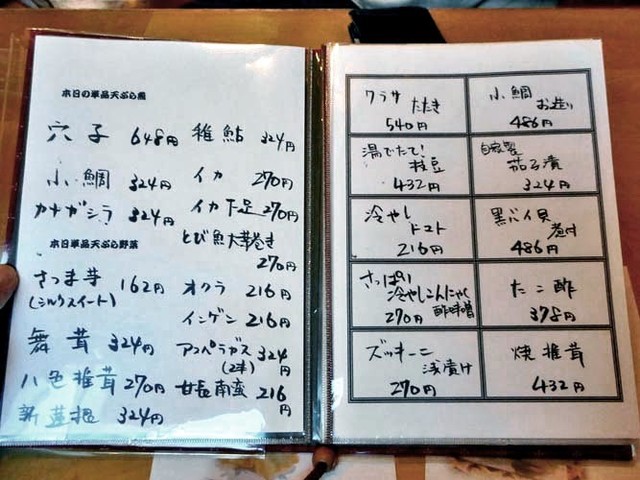 本日の単品天ぷら魚
穴子 648円 稚鮎 324円
小鯛 324円 イカ 270円
カナガシラ 324円 イカ下足 270円
とび魚大葉巻き
270円
本日単品天ぷら野菜
さつま芋 162円 オクラ 216円
(シルクスイート) インゲン 216円
舞茸 324円 アスパラガス 324円
(2本)
八色椎茸 270円 甘長南蛮 216円
新蓮根 324円
ワラサ たたき
540円
小鯛 お造り
486円
湯でたて!
枝豆
432円
自家製
茄子漬
324円
冷やし
トマト
216円
黒バイ貝
煮付
486円
さっぱり
冷やしこんにゃく
270円 酢味噌
たこ酢
378円
ズッキーニ
浅漬け
270円
焼椎茸
432円